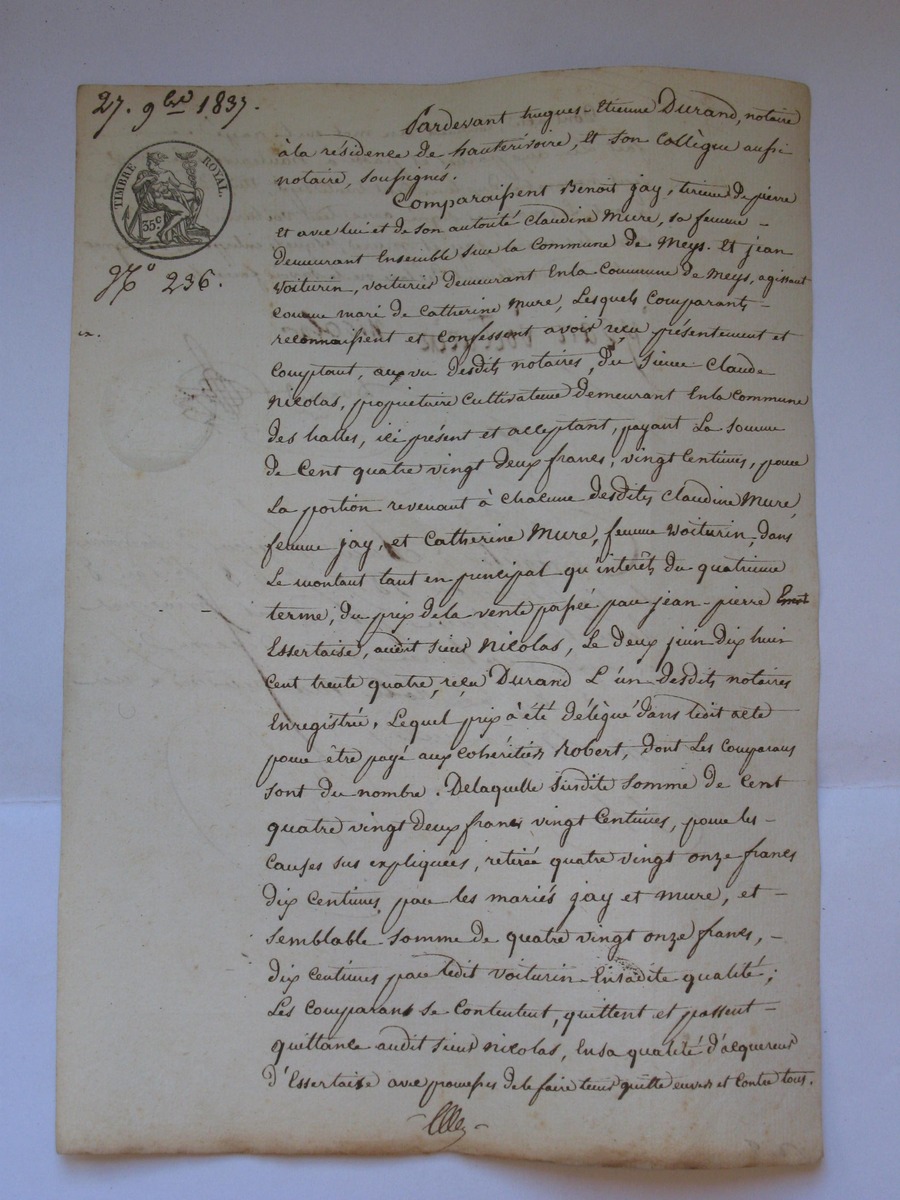 27. 9bre 1837.
TIMBRE ROYAL.
35c
No 236.
Pardevant hugues-Etienne Durand, notaire
à la résidence de hauterivoire, et son collègue aussi
notaire, soussignés.
Comparaissent Benoit jay, tireur de pierre
et avec lui et de son autorité Claudine Mure, sa femme -
demeurant Ensemble sur la Commune de Meys. Et jean
Voiturin, voiturier demeurant En la Commune de Meys, agissant
comme mari de Catherine Mure, Lesquels Comparants -
reconnaissent et confessent avoir reçu présentement et
comptant, aux vu desdits notaires, Du Sieur Claude
Nicolas, propriétaire Cultivateur demeurant En la Commune
des halles, ici présent et acceptant, payant La Somme
de Cent quatre vingt deux francs, vingt Centimes, pour
La portion revenant à chacune desdites Claudine Mure,
femme jay, et Catherine Mure, femme Voiturin, dans
Le montant tant en principal qu'interêts du quatrieme
terme, du prix de la vente passée par jean-pierre
Essertaise, audit sieur Nicolas, Le deux juin dix huit
Cent trente quatre, reçu Durand L'un desdits notaires
Enregistrée, Lequel prix à été délégué dans ledit acte
pour être payé aux cohéritiers Robert, dont Les comparans
sont du nombre. De laquelle susdite somme de Cent
quatre vingt deux francs vingt Centimes, pour les -
causes sus expliquées, retirée quatre vingt onze francs
dix Centimes par les mariés jay et mure, et -
semblable somme de quatre vingt onze francs, -
dix centimes par ledit voiturin En sadite qualité;
Les comparans se contentent, quittent et passent -
quittance audit sieur Nicolas, En sa qualité d'acquereur
d'Essertaise avec promesses de le faire tenir quitte envers et contre tous.